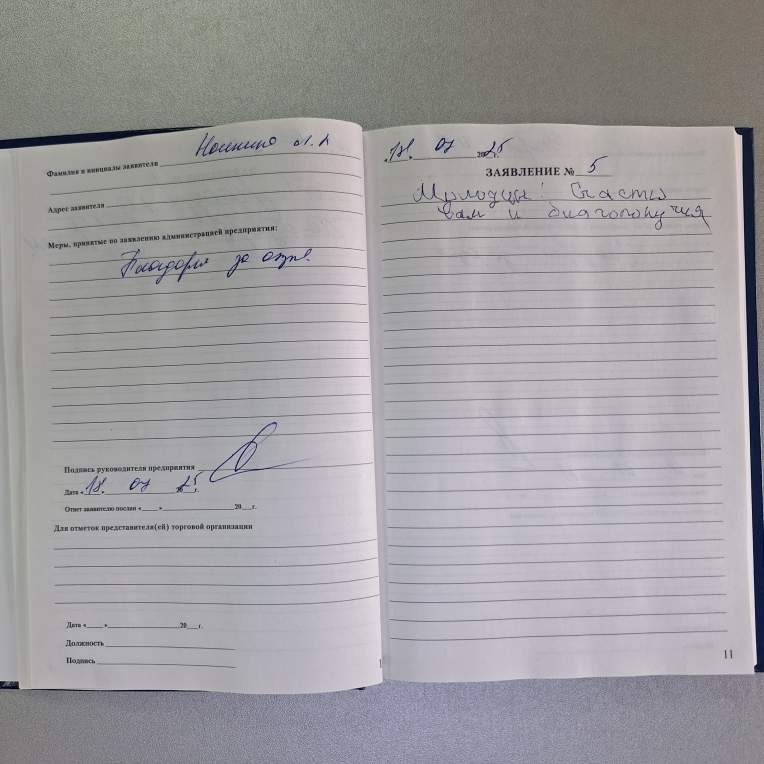 Фамилия и инициалы заявителя
Адрес заявителя
Меры, принятые по заявлению администрацией предприятия:
за
Подпись руководителя предприятия
Дата « 18. 07 2025 г.
Ответ заявителю послан «____» 20___г.
Для отметок представителя(ей) торговой организации
Дата «____» 20___г.
Должность
Подпись
18. 07 2025
ЗАЯВЛЕНИЕ № 5
Молодцы! Счастья
вам и благополучия
11